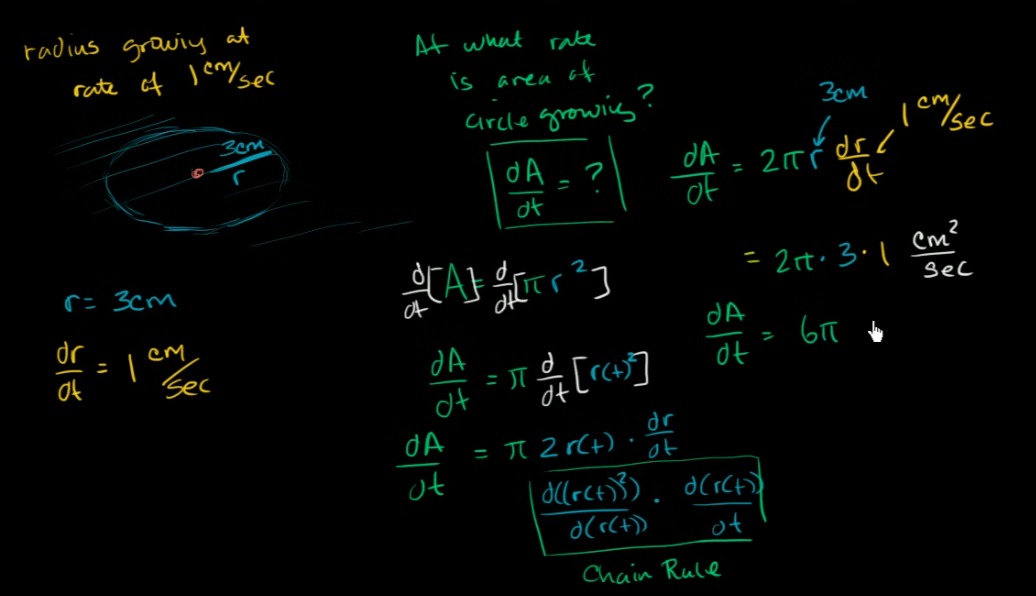 radius growing at
rate of 1 cm/sec
3cm
r
r = 3cm
dr/dt = 1 cm/sec
At what rate
is area of
circle growing?
dA/dt = ?
d/dt[A] = d/dt[πr²]
dA/dt = π d/dt [r(t)²]
dA/dt = π 2r(t) · dr/dt
d((r(t))²)/d(r(t)) · d(r(t))/dt
Chain Rule
3cm
1 cm/sec
dA/dt = 2πr dr/dt
= 2π · 3 · 1 cm²/sec
dA/dt = 6π